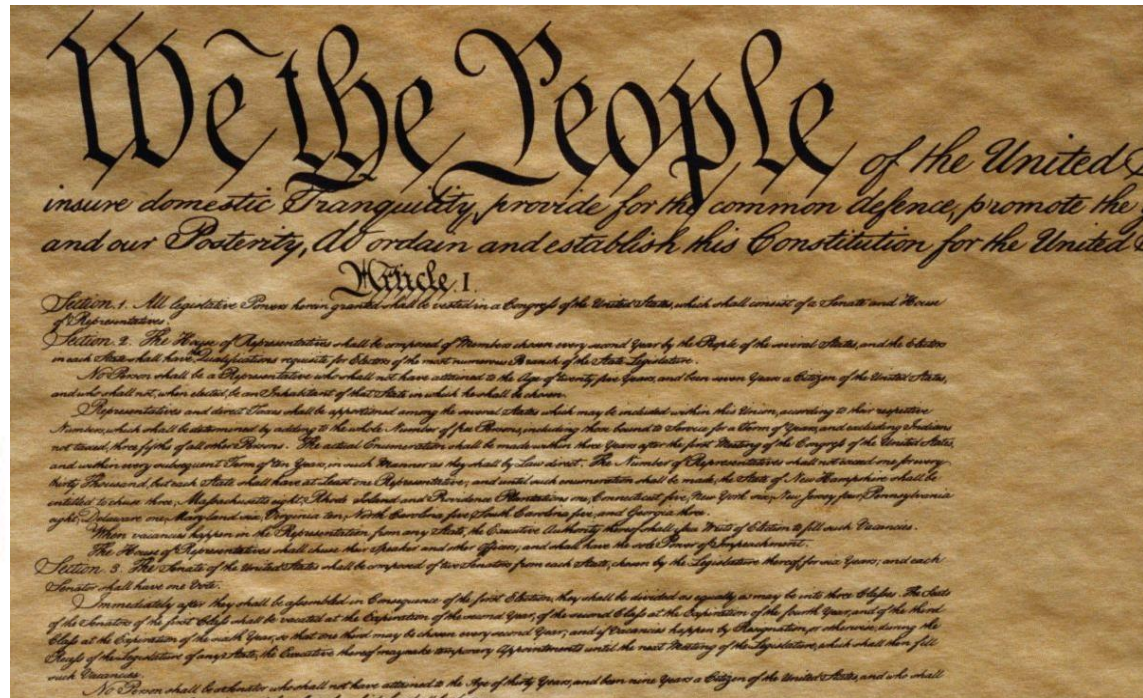 We the People of the United
insure domestic Tranquility, provide for the common defence, promote the
and our Posterity, do ordain and establish this Constitution for the United
Article. I.
Section. 1. All legislative Powers herein granted shall be vested in a Congress of the United States, which shall consist of a Senate and House
of Representatives.
Section. 2. The House of Representatives shall be composed of Members chosen every second Year by the People of the several States, and the Electors
in each State shall have the Qualifications requisite for Electors of the most numerous Branch of the State Legislature.
No Person shall be a Representative who shall not have attained to the Age of twenty five Years, and been seven Years a Citizen of the United States,
and who shall not, when elected, be an Inhabitant of that State in which he shall be chosen.
Representatives and direct Taxes shall be apportioned among the several States which may be included within this Union, according to their respective
Numbers, which shall be determined by adding to the whole Number of free Persons, including those bound to Service for a Term of Years, and excluding Indians
not taxed, three fifths of all other Persons. The actual Enumeration shall be made within three Years after the first Meeting of the Congress of the United States,
and within every subsequent Term of ten Years, in such Manner as they shall by Law direct. The Number of Representatives shall not exceed one for every
thirty Thousand, but each State shall have at Least one Representative; and until such enumeration shall be made, the State of New Hampshire shall be
entitled to chuse three, Massachusetts eight, Rhode Island and Providence Plantations one, Connecticut five, New York six, New Jersey four, Pennsylvania
eight, Delaware one, Maryland six, Virginia ten, North Carolina five, South Carolina five, and Georgia three.
When vacancies happen in the Representation from any State, the Executive Authority thereof shall issue Writs of Election to fill such Vacancies.
The House of Representatives shall chuse their Speaker and other Officers; and shall have the sole Power of Impeachment.
Section. 3. The Senate of the United States shall be composed of two Senators from each State, chosen by the Legislature thereof, for six Years; and each
Senator shall have one Vote.
Immediately after they shall be assembled in Consequence of the first Election, they shall be divided as equally as may be into three Classes. The Seats
of the Senators of the first Class shall be vacated at the Expiration of the second Year, of the second Class at the Expiration of the fourth Year, and of the third
Class at the Expiration of the sixth Year, so that one third may be chosen every second Year; and if Vacancies happen by Resignation, or otherwise, during the
Recess of the Legislature of any State, the Executive thereof may make temporary Appointments until the next Meeting of the Legislature, which shall then fill
such Vacancies.
No Person shall be a Senator who shall not have attained to the Age of thirty Years, and been nine Years a Citizen of the United States, and who shall